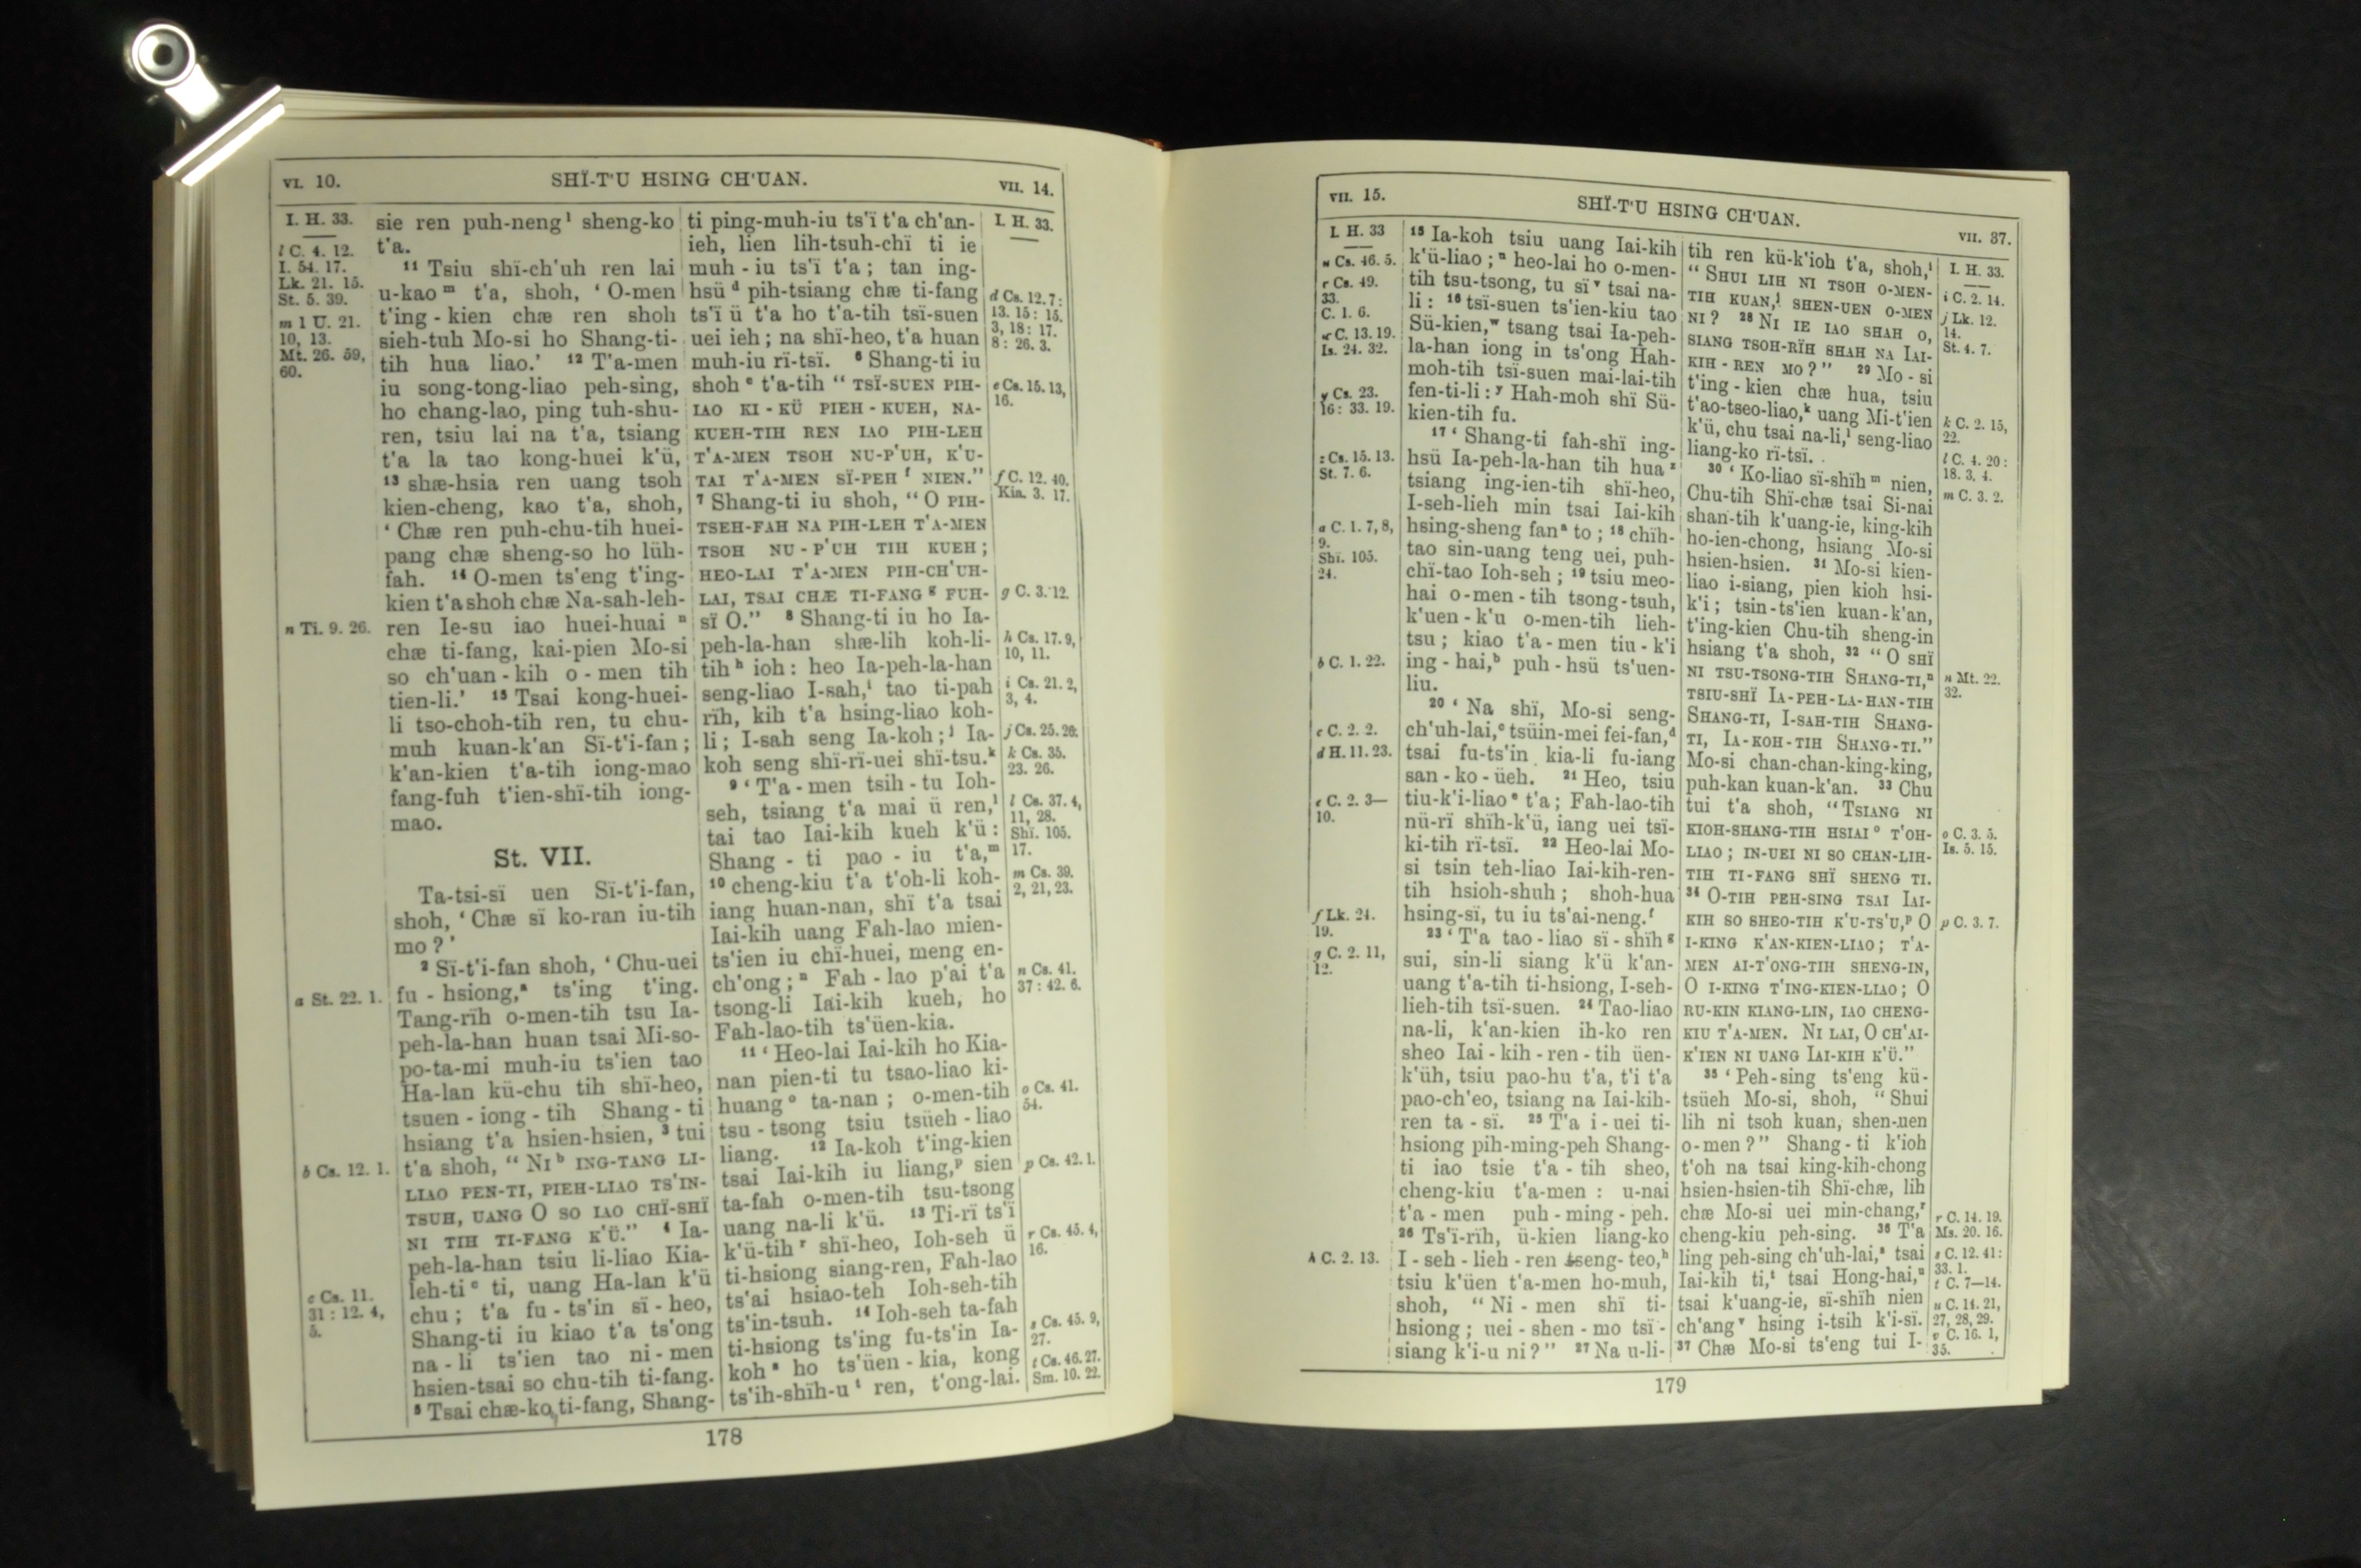 VI. 10. SHÏ-T'U HSING CH'UAN. VII. 14.
I. H. 33.
l C. 4. 12.
I. 54. 17.
Lk. 21. 15.
St. 5. 39.
m 1 U. 21.
10, 13.
Mt. 26. 59,
60.
n Ti. 9. 26.
a St. 22. 1.
b Cs. 12. 1.
c Cs. 11.
31 : 12. 4,
5.
sie ren puh-neng l sheng-ko
t'a.
11 Tsiu shï-ch'uh ren lai
u-kao m t'a, shoh, ‘ O-men
t'ing - kien chæ ren shoh
sieh-tuh Mo-si ho Shang-ti-
tih hua liao.’ 12 T'a-men
iu song-tong-liao peh-sing,
ho chang-lao, ping tuh-shu-
ren, tsiu lai na t'a, tsiang
t'a la tao kong-huei k'ü,
13 shæ-hsia ren uang tsoh
kien-cheng, kao t'a, shoh,
‘ Chæ ren puh-chu-tih huei-
pang chæ sheng-so ho lüh-
fah. 14 O-men ts'eng t'ing-
kien t'a shoh chæ Na-sah-leh-
ren Ie-su iao huei-huai n
chæ ti-fang, kai-pien Mo-si
so ch'uan - kih o - men tih
tien-li.’ 15 Tsai kong-huei-
li tso-choh-tih ren, tu chu-
muh kuan-k'an Sï-t'i-fan ;
k'an-kien t'a-tih iong-mao
fang-fuh t'ien-shï-tih iong-
mao.
St. VII.
Ta-tsi-sï uen Sï-t'i-fan,
shoh, ‘ Chæ sï ko-ran iu-tih
mo ? ’
2 Sï-t'i-fan shoh, ‘ Chu-uei
fu - hsiong, a ts'ing t'ing.
Tang-rïh o-men-tih tsu Ia-
peh-la-han huan tsai Mi-so-
po-ta-mi muh-iu ts'ien tao
Ha-lan kü-chu tih shï-heo,
tsuen - iong - tih Shang - ti
hsiang t'a hsien-hsien, 3 tui
t'a shoh, “ NI b ING-TANG LI-
LIAO PEN-TI, PIEH-LIAO TS'IN-
TSUH, UANG O SO IAO CHÏ-SHÏ
NI TIH TI-FANG K'Ü.” 4 Ia-
peh-la-han tsiu li-liao Kia-
leh-ti c ti, uang Ha-lan k'ü
chu ; t'a fu - ts'in sï - heo,
Shang-ti iu kiao t'a ts'ong
na - li ts'ien tao ni - men
hsien-tsai so chu-tih ti-fang.
5 Tsai chæ-ko ti-fang, Shang-
ti ping-muh-iu ts'ï t'a ch'an-
ieh, lien lih-tsuh-chï ti ie
muh - iu ts'ï t'a ; tan ing-
hsü d pih-tsiang chæ ti-fang
ts'ï ü t'a ho t'a-tih tsï-suen
uei ieh ; na shï-heo, t'a huan
muh-iu rï-tsï. 6 Shang-ti iu
shoh e t'a-tih “ TSÏ-SUEN PIH-
IAO KI - KÜ PIEH - KUEH, NA-
KUEH-TIH REN IAO PIH-LEH
T'A-MEN TSOH NU-P'UH, K'U-
TAI T'A-MEN SÏ-PEH f NIEN.”
7 Shang-ti iu shoh, “ O PIH-
TSEH-FAH NA PIH-LEH T'A-MEN
TSOH NU - P'UH TIH KUEH ;
HEO-LAI T'A-MEN PIH-CH'UH-
LAI, TSAI CHÆ TI-FANG g FUH-
SÏ O.” 8 Shang-ti iu ho Ia-
peh-la-han shæ-lih koh-li-
tih h ioh : heo Ia-peh-la-han
seng-liao I-sah, i tao ti-pah
rïh, kih t'a hsing-liao koh-
li ; I-sah seng Ia-koh ; j Ia-
koh seng shï-rï-uei shï-tsu. k
9 ‘ T'a - men tsih - tu Ioh-
seh, tsiang t'a mai ü ren, l
tai tao Iai-kih kueh k'ü :
Shang - ti pao - iu t'a, m
10 cheng-kiu t'a t'oh-li koh-
iang huan-nan, shï t'a tsai
Iai-kih uang Fah-lao mien-
ts'ien iu chï-huei, meng en-
ch'ong ; n Fah - lao p'ai t'a
tsong-li Iai-kih kueh, ho
Fah-lao-tih ts'üen-kia.
11 ‘ Heo-lai Iai-kih ho Kia-
nan pien-ti tu tsao-liao ki-
huang o ta-nan ; o-men-tih
tsu - tsong tsiu tsüeh - liao
liang. 12 Ia-koh t'ing-kien
tsai Iai-kih iu liang, p sien
ta-fah o-men-tih tsu-tsong
uang na-li k'ü. 13 Ti-rï ts'ï
k'ü-tih r shï-heo, Ioh-seh ü
ti-hsiong siang-ren, Fah-lao
ts'ai hsiao-teh Ioh-seh-tih
ts'in-tsuh. 14 Ioh-seh ta-fah
ti-hsiong ts'ing fu-ts'in Ia-
koh s ho ts'üen - kia, kong
ts'ih-shïh-u t ren, t'ong-lai.
I. H. 33.
d Cs. 12. 7 :
13. 15 : 15.
3, 18 : 17.
8 : 26. 3.
e Cs. 15. 13,
16.
f C. 12. 40.
Kia. 3. 17.
g C. 3. 12.
h Cs. 17. 9,
10, 11.
i Cs. 21. 2,
3, 4.
j Cs. 25. 26.
k Cs. 35.
23. 26.
l Cs. 37. 4,
11, 28.
Shï. 105.
17.
m Cs. 39.
2, 21, 23.
n Cs. 41.
37 : 42. 6.
o Cs. 41.
54.
p Cs. 42. 1.
r Cs. 45. 4,
16.
s Cs. 45. 9,
27.
t Cs. 46. 27.
Sm. 10. 22.
178
VII. 15. SHÏ-T'U HSING CH'UAN. VII. 37.
I. H. 33
u Cs. 46. 5.
r Cs. 49.
33.
C. 1. 6.
w C. 13. 19.
Is. 24. 32.
y Cs. 23.
16 : 33. 19.
z Cs. 15. 13.
St. 7. 6.
a C. 1. 7, 8,
9.
Shï. 105.
24.
b C. 1. 22.
c C. 2. 2.
d H. 11. 23.
e C. 2. 3—
10.
f Lk. 24.
19.
g C. 2. 11,
12.
h C. 2. 13.
15 Ia-koh tsiu uang Iai-kih
k'ü-liao ; u heo-lai ho o-men-
tih tsu-tsong, tu sï v tsai na-
li : 16 tsï-suen ts'ien-kiu tao
Sü-kien, w tsang tsai Ia-peh-
la-han iong in ts'ong Hah-
moh-tih tsï-suen mai-lai-tih
fen-ti-li : y Hah-moh shï Sü-
kien-tih fu.
17 ‘ Shang-ti fah-shï ing-
hsü Ia-peh-la-han tih hua z
tsiang ing-ien-tih shï-heo,
I-seh-lieh min tsai Iai-kih
hsing-sheng fan a to ; 18 chïh-
tao sin-uang teng uei, puh-
chï-tao Ioh-seh ; 19 tsiu meo-
hai o-men - tih tsong-tsuh,
k'uen - k'u o-men-tih lieh-
tsu ; kiao t'a - men tiu - k'i
ing - hai, b puh - hsü ts'uen-
liu.
20 ‘ Na shï, Mo-si seng-
ch'uh-lai, c tsüin-mei fei-fan, d
tsai fu-ts'in kia-li fu-iang
san - ko - üeh. 21 Heo, tsiu
tiu-k'i-liao e t'a ; Fah-lao-tih
nü-rï shïh-k'ü, iang uei tsï-
ki-tih rï-tsï. 22 Heo-lai Mo-
si tsin teh-liao Iai-kih-ren-
tih hsioh-shuh ; shoh-hua
hsing-sï, tu iu ts'ai-neng. f
23 ‘ T'a tao - liao sï - shïh g
sui, sin-li siang k'ü k'an-
uang t'a-tih ti-hsiong, I-seh-
lieh-tih tsï-suen. 24 Tao-liao
na-li, k'an-kien ih-ko ren
sheo Iai - kih - ren - tih üen-
k'üh, tsiu pao-hu t'a, t'i t'a
pao-ch'eo, tsiang na Iai-kih-
ren ta - sï. 25 T'a i - uei ti-
hsiong pih-ming-peh Shang-
ti iao tsie t'a - tih sheo,
cheng-kiu t'a-men : u-nai
t'a - men puh - ming - peh.
26 Ts'ï-rïh, ü-kien liang-ko
I - seh - lieh - ren tseng- teo, h
tsiu k'üen t'a-men ho-muh,
shoh, “ Ni - men shï ti-
hsiong ; uei - shen - mo tsï -
siang k'i-u ni ? ” 27 Na u-li-
tih ren kü-k'ioh t'a, shoh, i
“ SHUI LIH NI TSOH O-MEN-
TIH KUAN, j SHEN-UEN O-MEN
NI ? 28 NI IE IAO SHAH O,
SIANG TSOH-RÏH SHAH NA IAI-
KIH - REN MO ? ” 29 Mo - si
t'ing - kien chæ hua, tsiu
t'ao-tseo-liao, k uang Mi-t'ien
k'ü, chu tsai na-li, l seng-liao
liang-ko rï-tsï.
30 ‘ Ko-liao sï-shïh m nien,
Chu-tih Shï-chæ tsai Si-nai
shan-tih k'uang-ie, king-kih
ho-ien-chong, hsiang Mo-si
hsien-hsien. 31 Mo-si kien-
liao i-siang, pien kioh hsi-
k'i ; tsin - ts'ien kuan - k'an,
t'ing-kien Chu-tih sheng-in
hsiang t'a shoh, 32 “ O SHÏ
NI TSU-TSONG-TIH SHANG-TI, n
TSIU-SHÏ IA-PEH-LA-HAN-TIH
SHANG-TI, I-SAH-TIH SHANG-
TI, IA-KOH-TIH SHANG-TI.”
Mo-si chan-chan-king-king,
puh-kan kuan-k'an. 33 Chu
tui t'a shoh, “ TSIANG NI
KIOH-SHANG-TIH HSIAI o T'OH-
LIAO ; IN-UEI NI SO CHAN-LIH-
TIH TI-FANG SHÏ SHENG TI.
34 O-TIH PEH-SING TSAI IAI-
KIH SO SHEO-TIH K'U-TS'U, p O
I-KING K'AN-KIEN-LIAO ; T'A-
MEN AI-T'ONG-TIH SHENG-IN,
O I-KING T'ING-KIEN-LIAO ; O
RU-KIN KIANG-LIN, IAO CHENG-
KIU T'A-MEN. NI LAI, O CH'AI-
K'IEN NI UANG IAI-KIH K'Ü.”
35 ‘ Peh-sing ts'eng kü-
tsüeh Mo-si, shoh, “ Shui
lih ni tsoh kuan, shen-uen
o-men ? ” Shang - ti k'ioh
t'oh na tsai king-kih-chong
hsien-hsien-tih Shï-chæ, lih
chæ Mo-si uei min-chang, r
cheng-kiu peh-sing. 36 T'a
ling peh-sing ch'uh-lai, s tsai
Iai-kih ti, t tsai Hong-hai, u
tsai k'uang-ie, sï-shïh nien
ch'ang v hsing i-tsih k'i-sï.
37 Chæ Mo-si ts'eng tui I-
I. H. 33.
i C. 2. 14.
j Lk. 12.
14.
St. 4. 7.
k C. 2. 15,
22.
l C. 4. 20 :
18. 3, 4.
m C. 3. 2.
n Mt. 22.
32.
o C. 3. 5.
Is. 5. 15.
p C. 3. 7.
r C. 14. 19.
Ms. 20. 16.
s C. 12. 41 :
33. 1.
t C. 7—14.
u C. 14. 21,
27, 28, 29.
v C. 16. 1,
35.
179